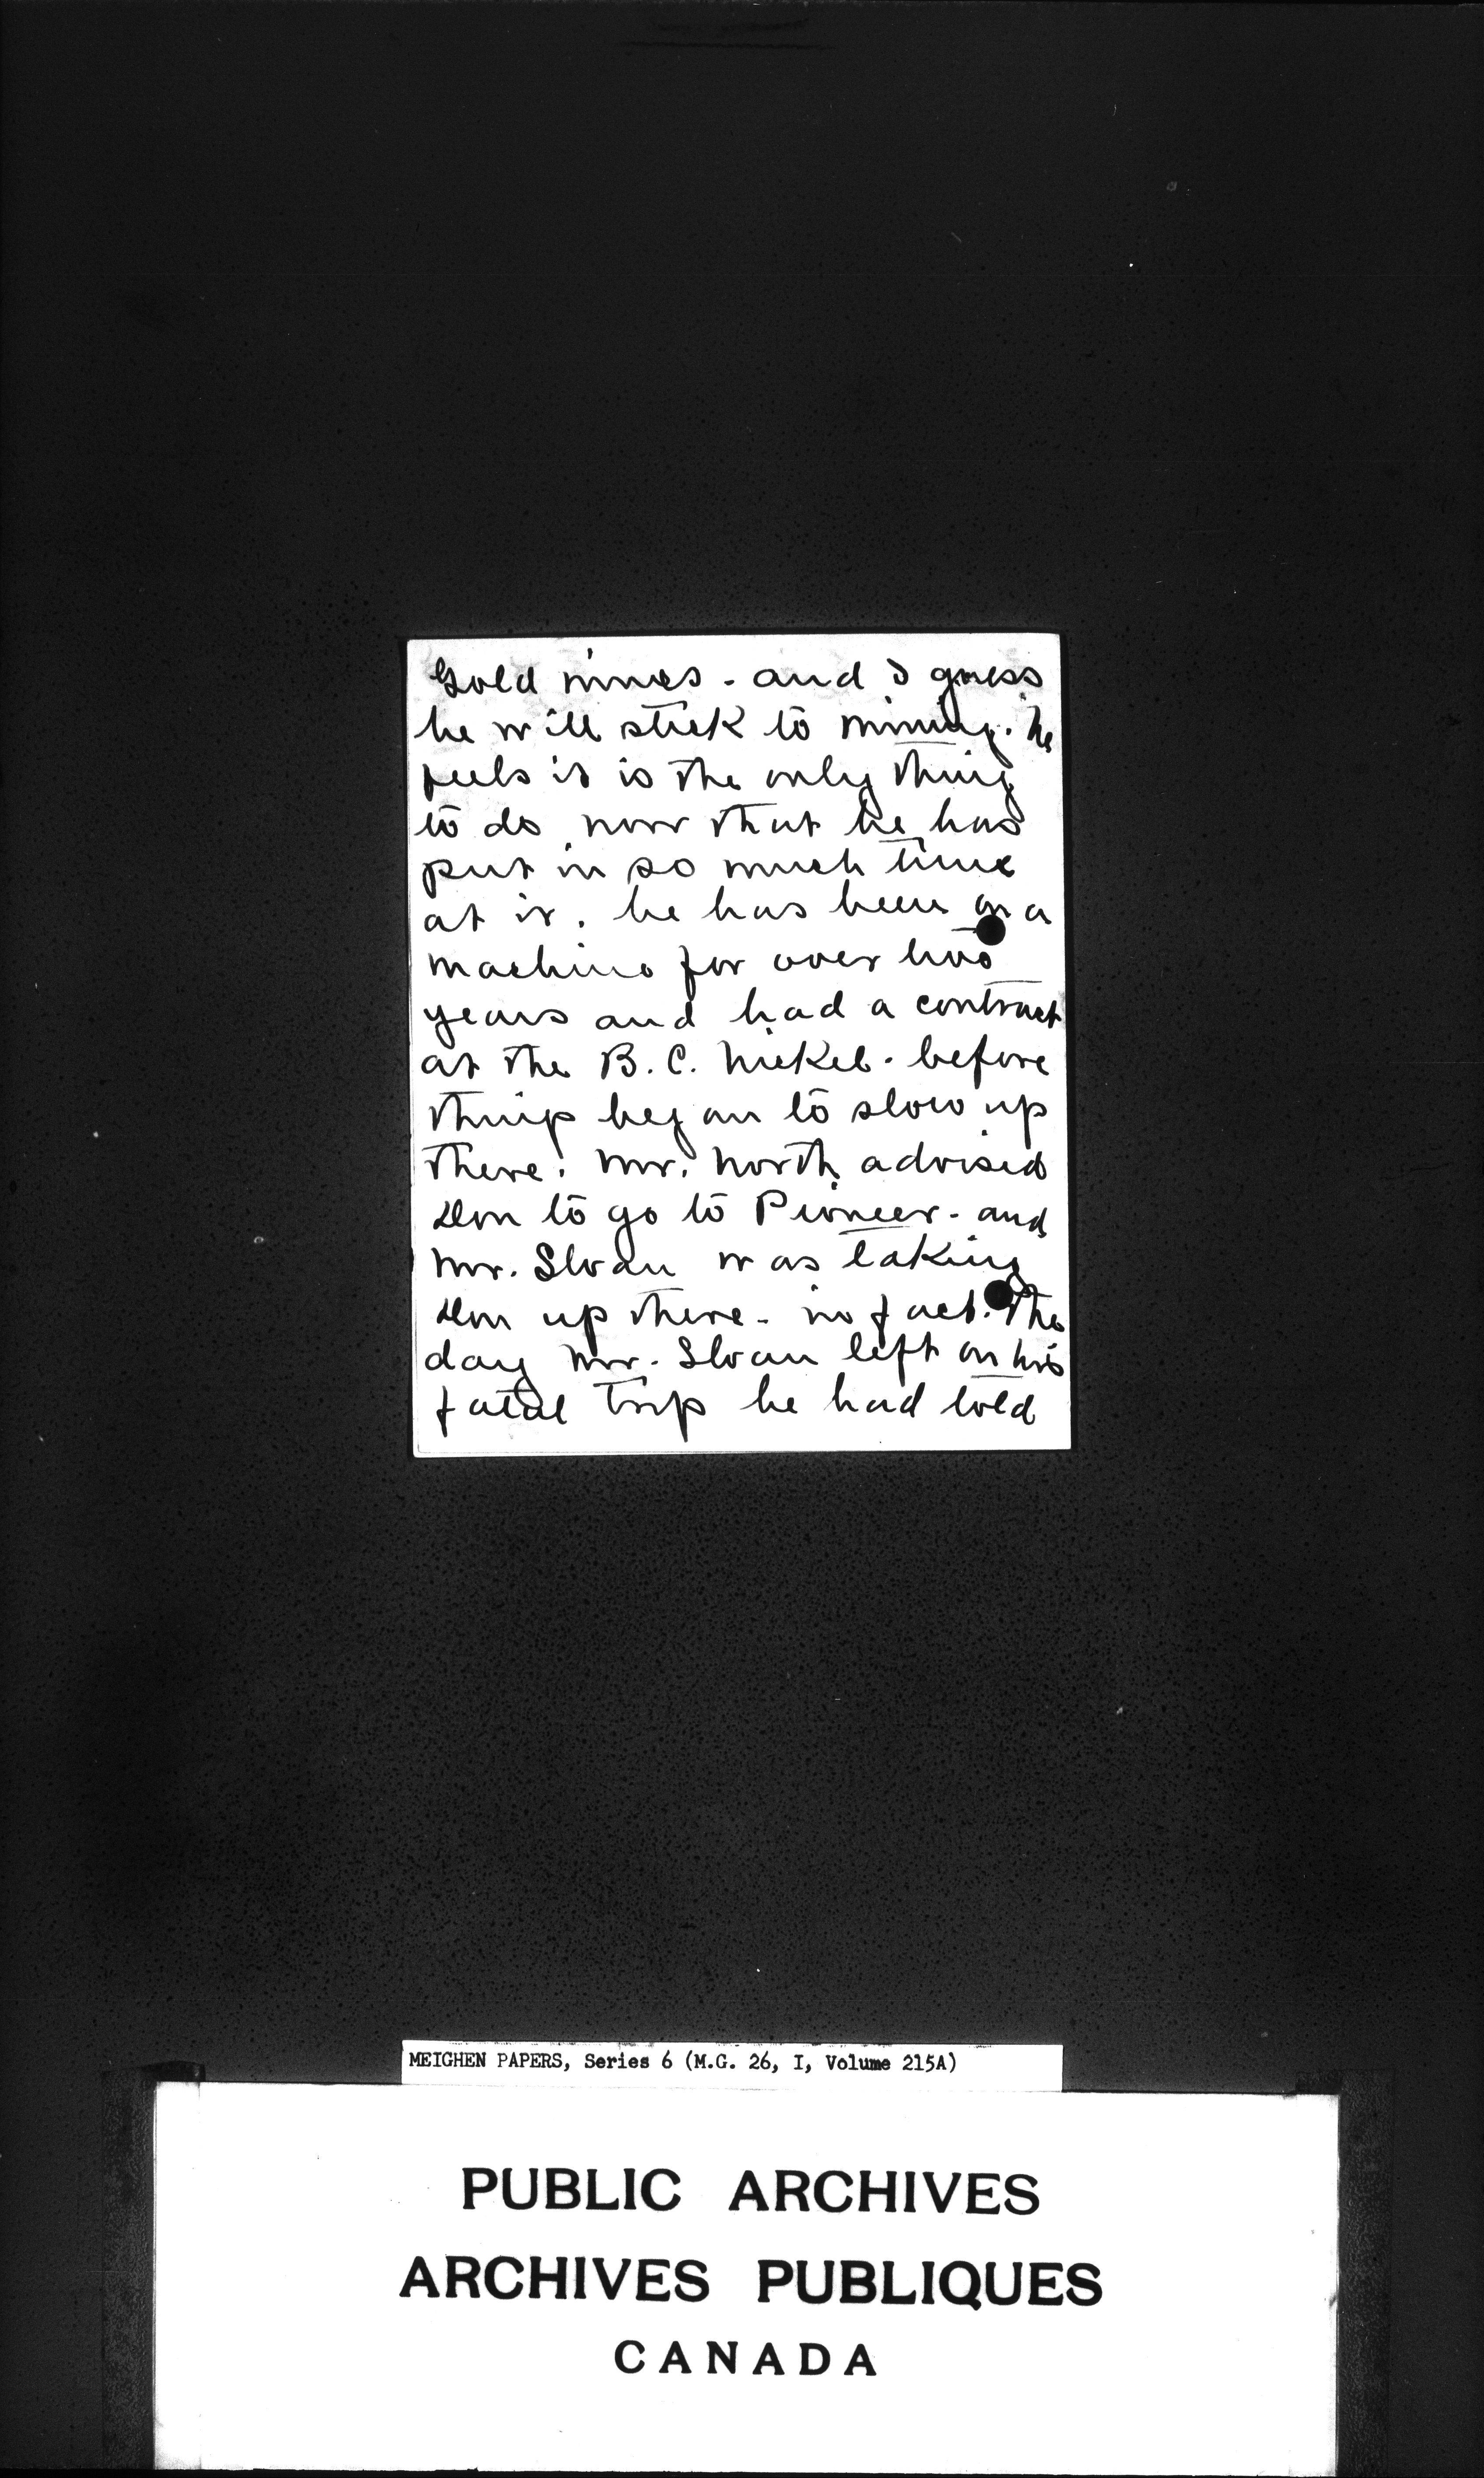 Gold mines - and I guess
he will stick to mining. he
feels it is the only thing
to do now that he has
put in so much time
at it. he has been on a
machine for over two
years and had a contract
at the B.C. Nickel - before
things began to slow up
there. Mr. North advised
Don to go to Pioneer - and
Mr. Sloan was taking
Don up there - in fact. The
day Mr. Sloan left on his
fatal trip he had told
MEIGHEN PAPERS, Series 6 (M.G. 26, I, Volume 215A)
PUBLIC ARCHIVES
ARCHIVES PUBLIQUES
CANADA